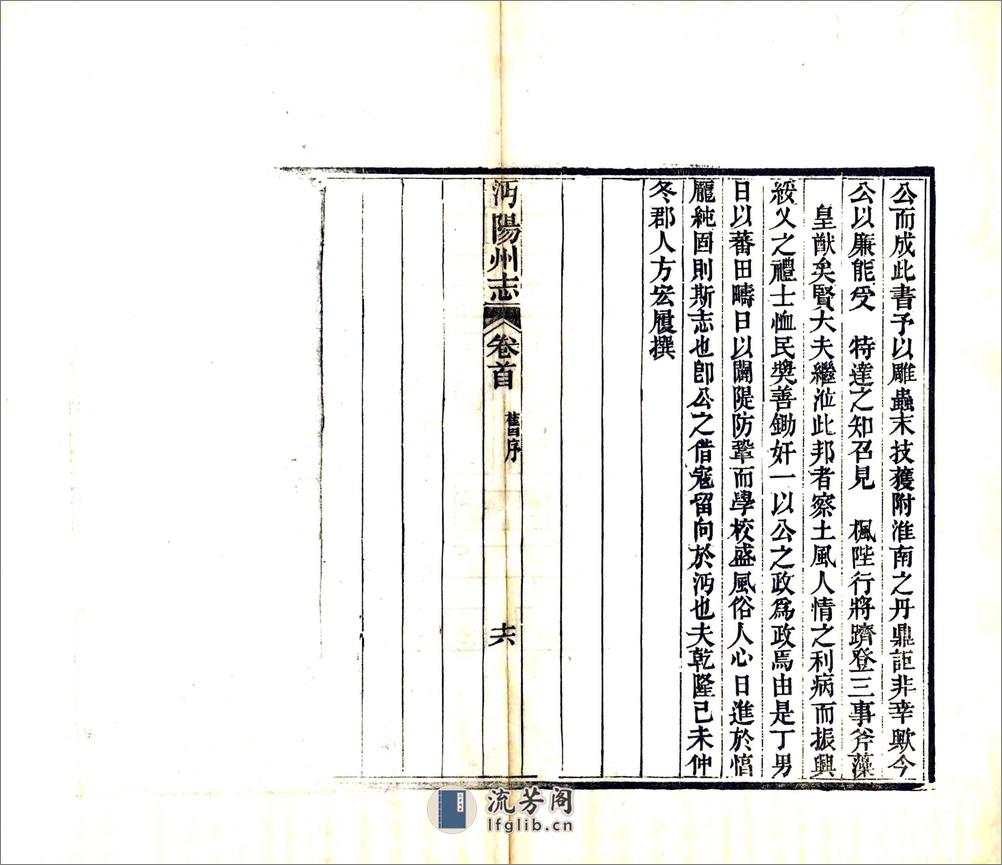 公而成此書予以雕蟲末技獲附淮南之丹鼎詎非幸歟今
公以廉能受　特達之知召見　楓陛行將躋登三事斧藻
皇猷矣賢大夫繼涖此邦者察土風人情之利病而振興
綏乂之禮士恤民獎善鋤奸一以公之政爲政焉由是丁男
日以蕃田疇日以闢隄防鞏而學校盛風俗人心日進於惇
龐純固則斯志也卽公之借寇留向於沔也夫乾隆己未仲
冬郡人方宏履撰
沔陽州志
卷首
舊序
十六
流芳阁
lfglib.cn